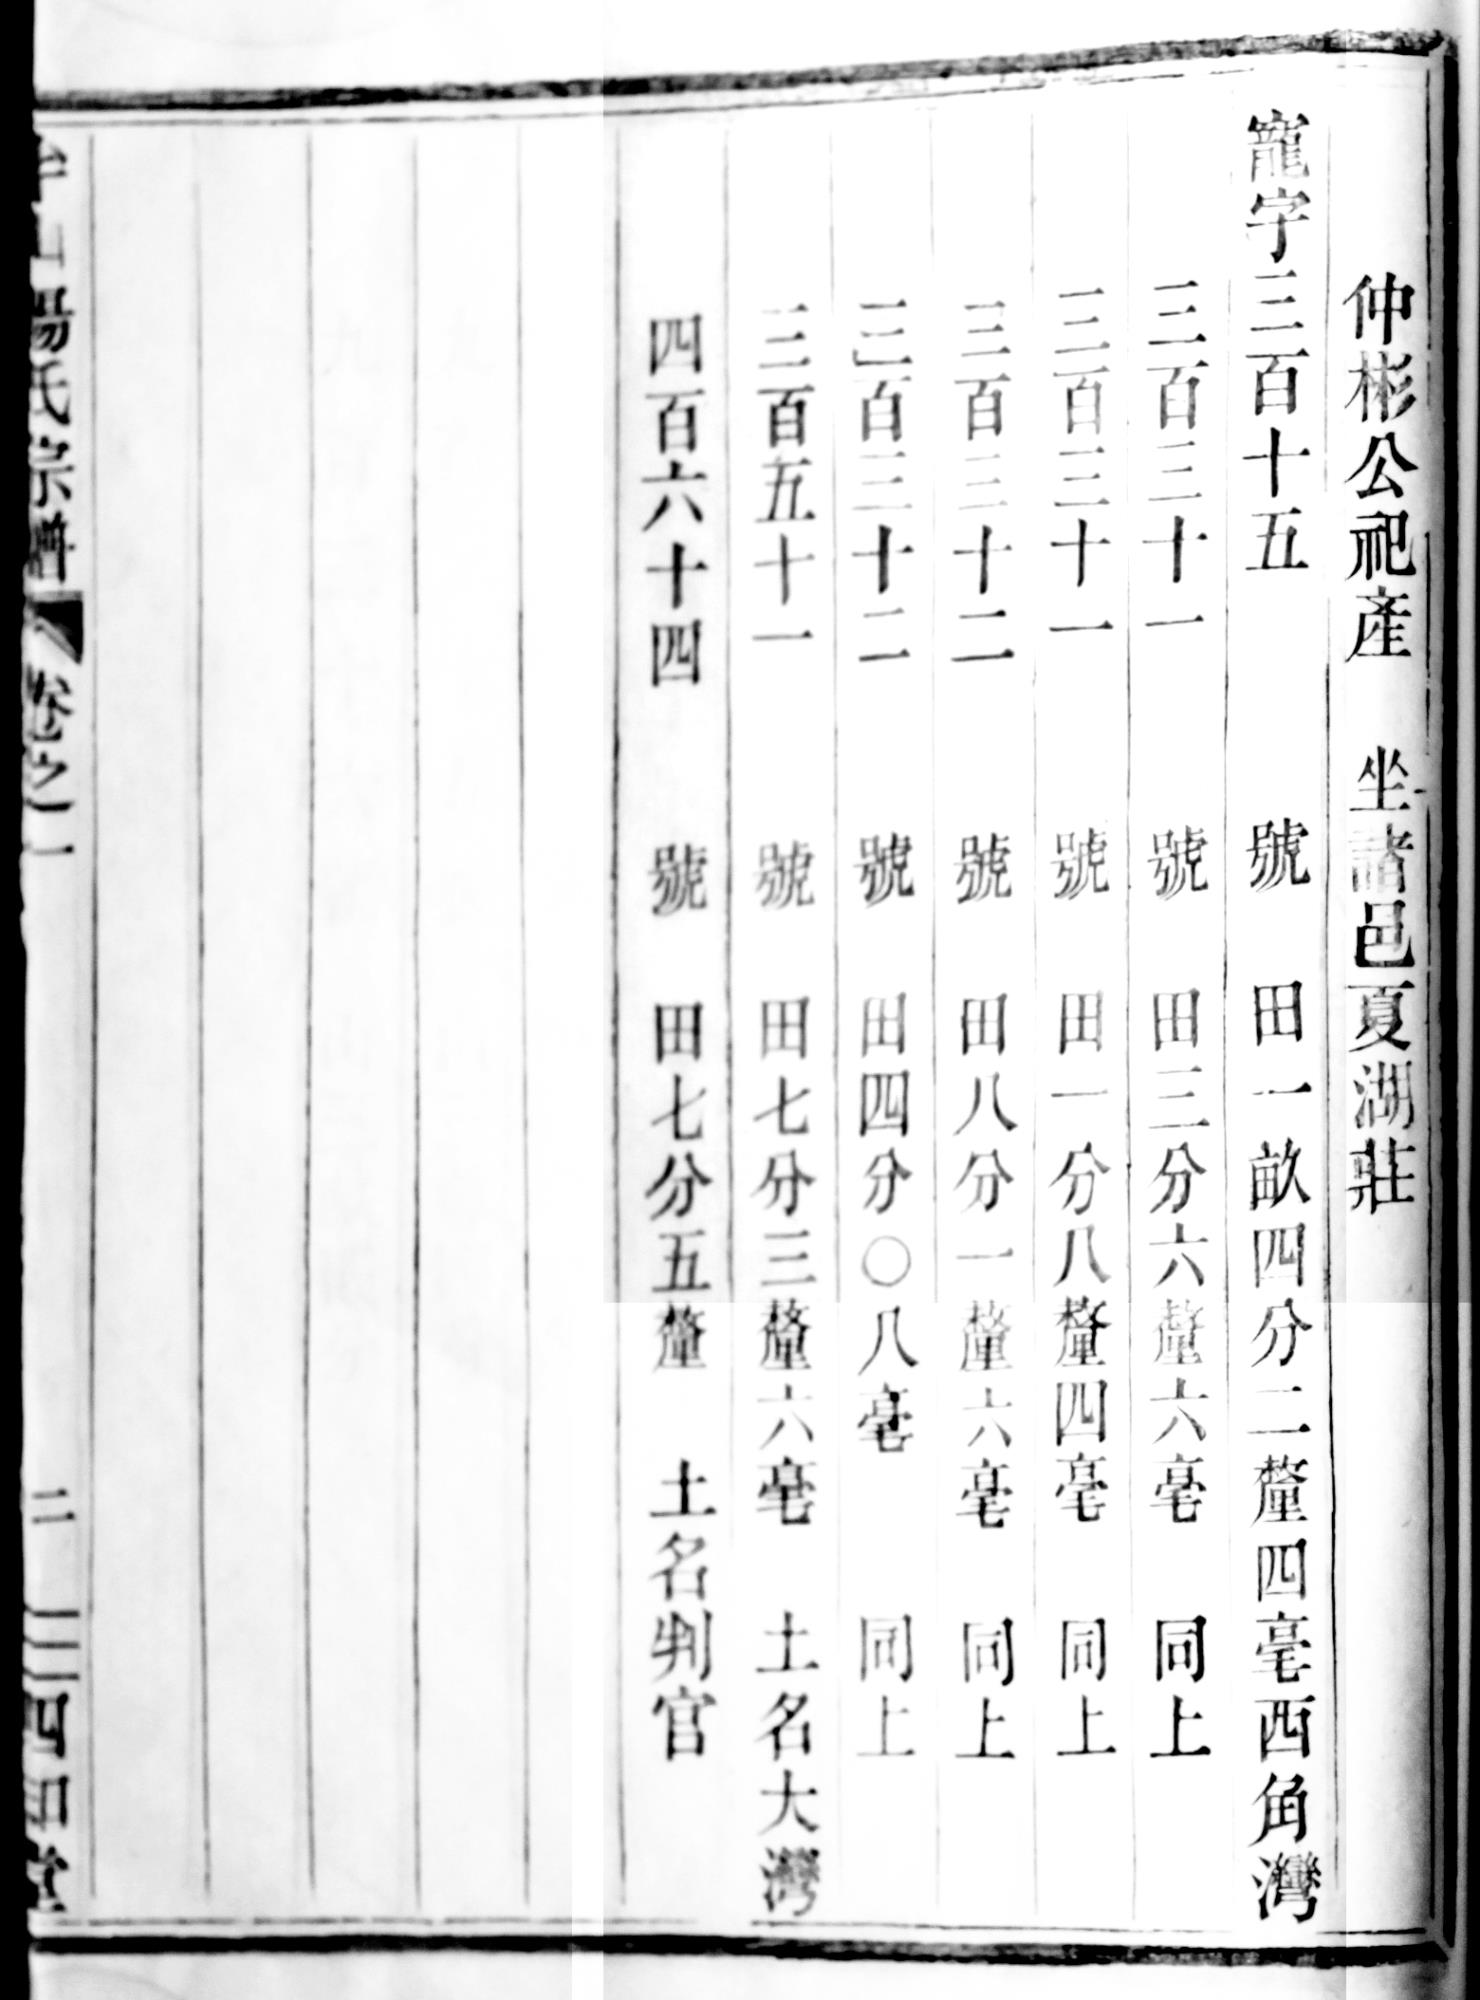 仲彬公祀產　坐諸邑夏湖莊
寵字三百十五　號　田一畝四分二釐四毫西角灣
三百三十一　號　田三分六釐六毫　同上
三百三十一　號　田一分八釐四毫　同上
三百三十二　號　田八分一釐六毫　同上
三百三十二　號　田四分〇八毫　同上
三百五十一　號　田七分三釐六毫　土名大灣
四百六十四　號　田七分五釐　土名判官
山楊氏宗譜　卷之一　二　四知堂